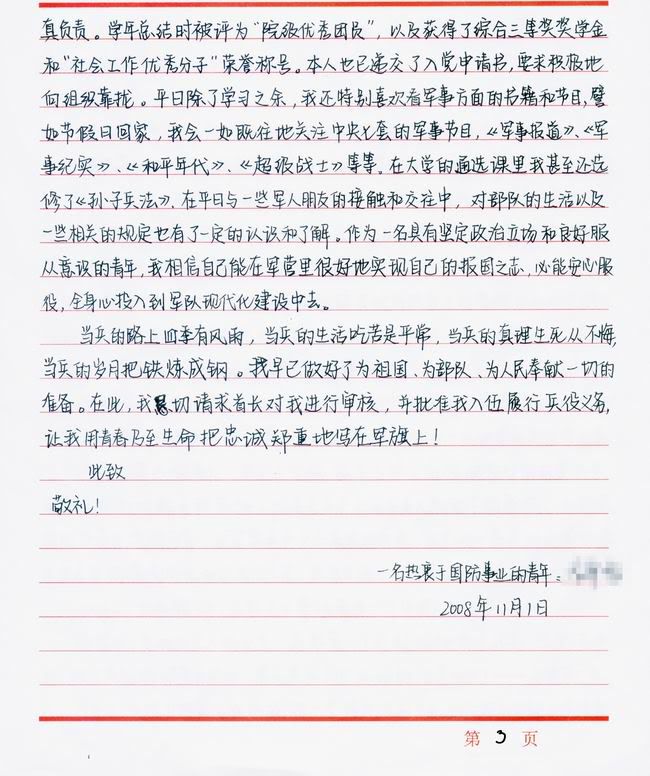 真负责。学年总结时被评为“院级优秀团员”，以及获得了综合三等奖奖学金
和“社会工作优秀分子”荣誉称号。本人也已递交了入党申请书，要求积极地
向组织靠拢。平日除了学习之余，我还特别喜欢看军事方面的书籍和节目，譬
如节假日回家，我会一如既往地关注中央七套的军事节目，《军事报道》、《军
事纪实》、《和平年代》、《超级战士》等等。在大学的通选课里我甚至还选
修了《孙子兵法》、在平日与一些军人朋友的接触和交往中，对部队的生活以及
一些相关的规定也有了一定的认识和了解。作为一名具有坚定政治立场和良好服
从意识的青年，我相信自己能在军营里很好地实现自己的报国之志，必能安心服
役，全身心投入到军队现代化建设中去。
当兵的路上四季有风雨，当兵的生活吃苦是平常，当兵的真理生死从不悔，
当兵的岁月把铁炼成钢。我早已做好了为祖国、为部队、为人民奉献一切的
准备。在此，我恳切请求首长对我进行审核，并批准我入伍履行兵役义务，
让我用青春乃至生命把忠诚郑重地写在军旗上！
此致
敬礼！
一名热衷于国防事业的青年：
2008年11月1日
第 3 页